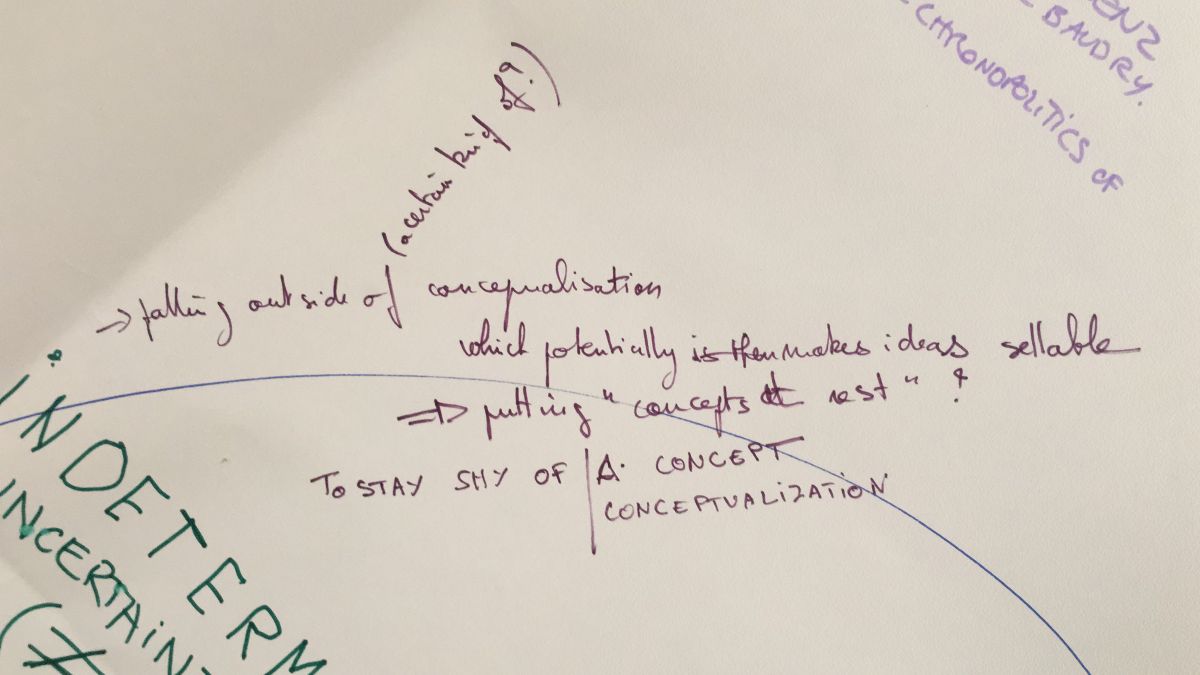 ENZ
E BAUDRY.
CHRONOPOLITICS OF
(a certain kind of?)
→ falling outside of concepualisation
which potentially is then makes ideas sellable
⇒ putting "concepts at rest" ?
TO STAY SHY OF | A CONCEPT
CONCEPTUALIZATION
iNDETERM
UNCERTAIN
(≠